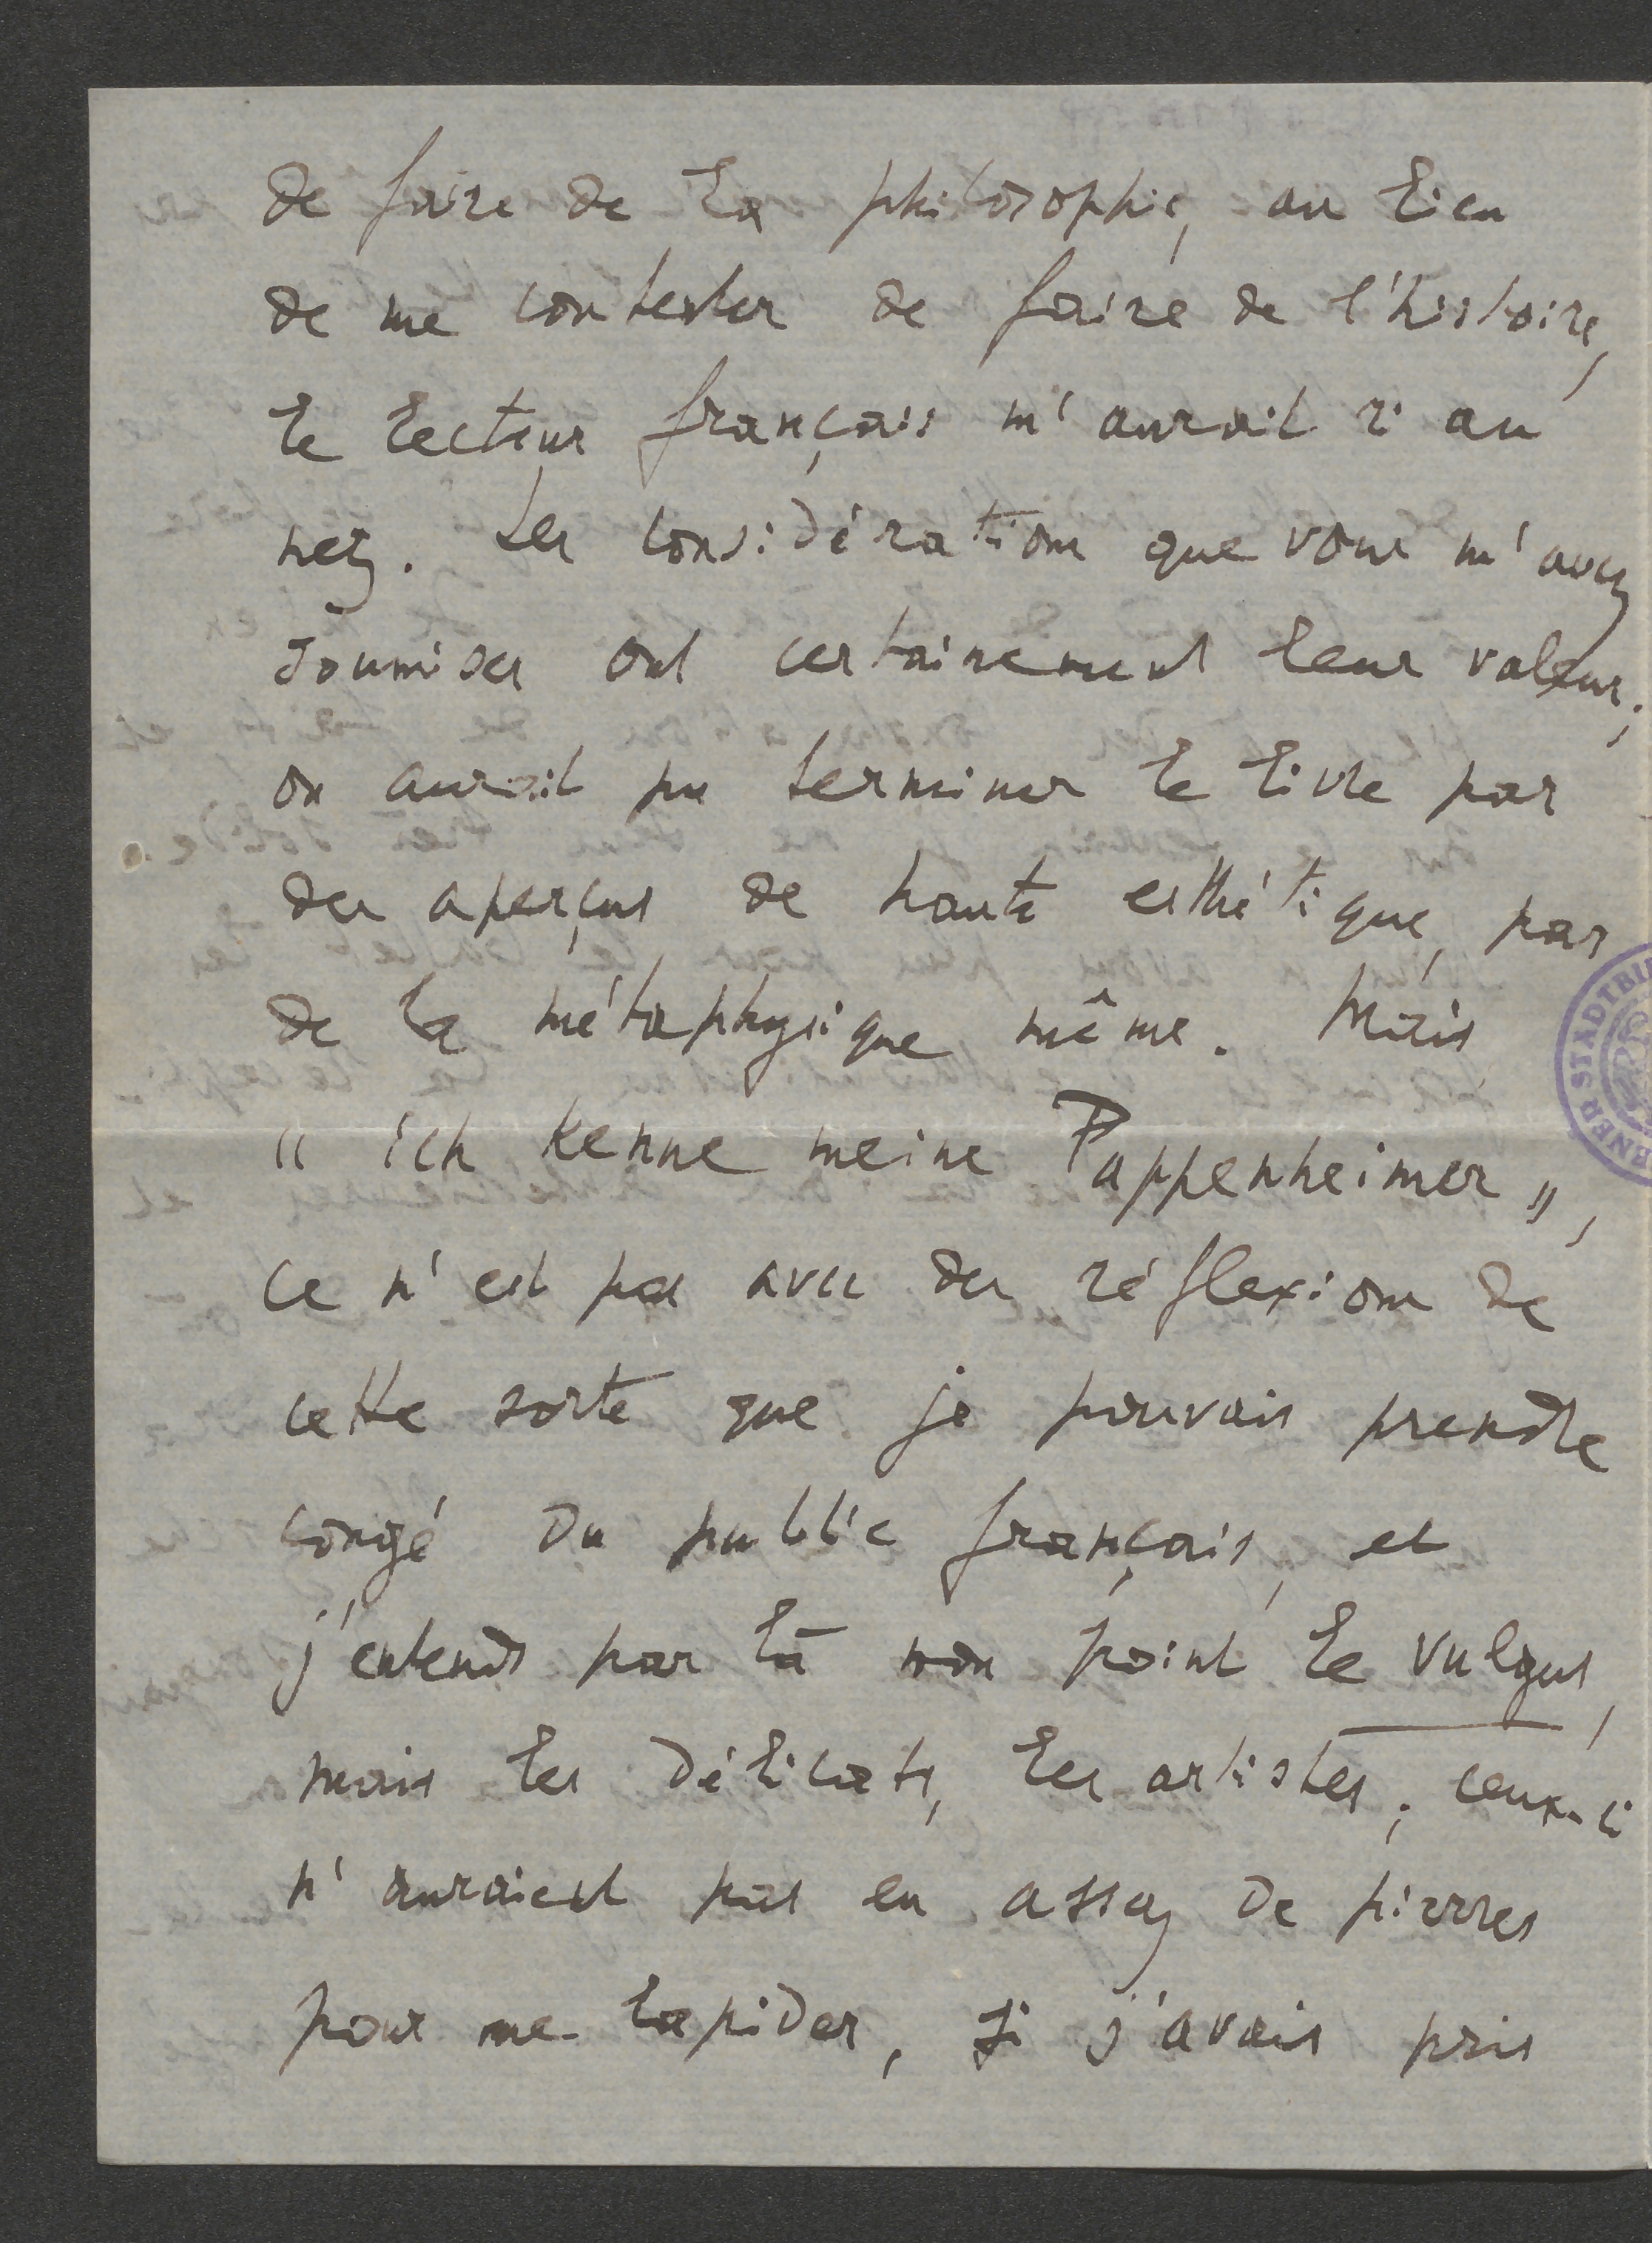 de faire de la philosophie, au lieu
de me contenter de faire de l'histoire,
le lecteur français m'aurait ri au
nez. Les considérations que vous m'avez
soumises ont certainement leur valeur;
on aurait pu terminer le livre par
des aperçus de haute esthétique, par
de la métaphysique même. Mais
"ich kenne meine Pappenheimer",
ce n'est pas avec des réflexions de
cette sorte que je pouvais prendre
congé du public français, et
j'entends par là non point le vulgus,
mais les délicats, les artistes; ceux-ci
n'auraient pas eu assez de pierres
pour me lapider, si j'avais pris
NER STADTBI